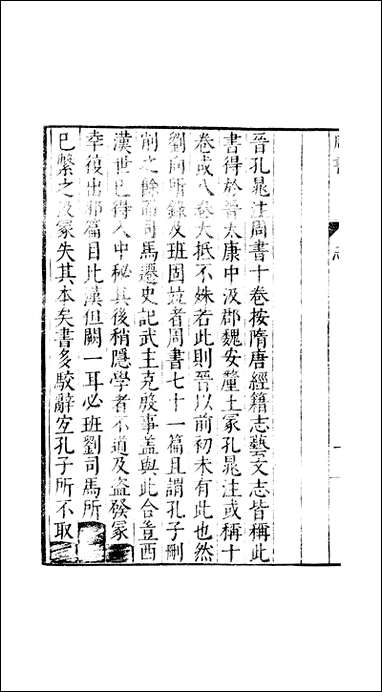 晉孔晁注周書十卷按隋唐經籍志藝文志皆稱此
書得於晉太康中汲郡魏安釐王冢孔晁注或稱十
卷或八卷大抵不殊若此則晉以前初未有此也然
劉向所錄及班固並著周書七十一篇且謂孔子刪
削之餘而司馬遷史記武王克殷事蓋與此合豈西
漢世已得入中秘其後稍隱學者不道及盜發冢
幸復出邪篇目比漢但闕一耳必班劉司馬所
已繫之汲冢失其本矣書多駮辭宐孔子所不取